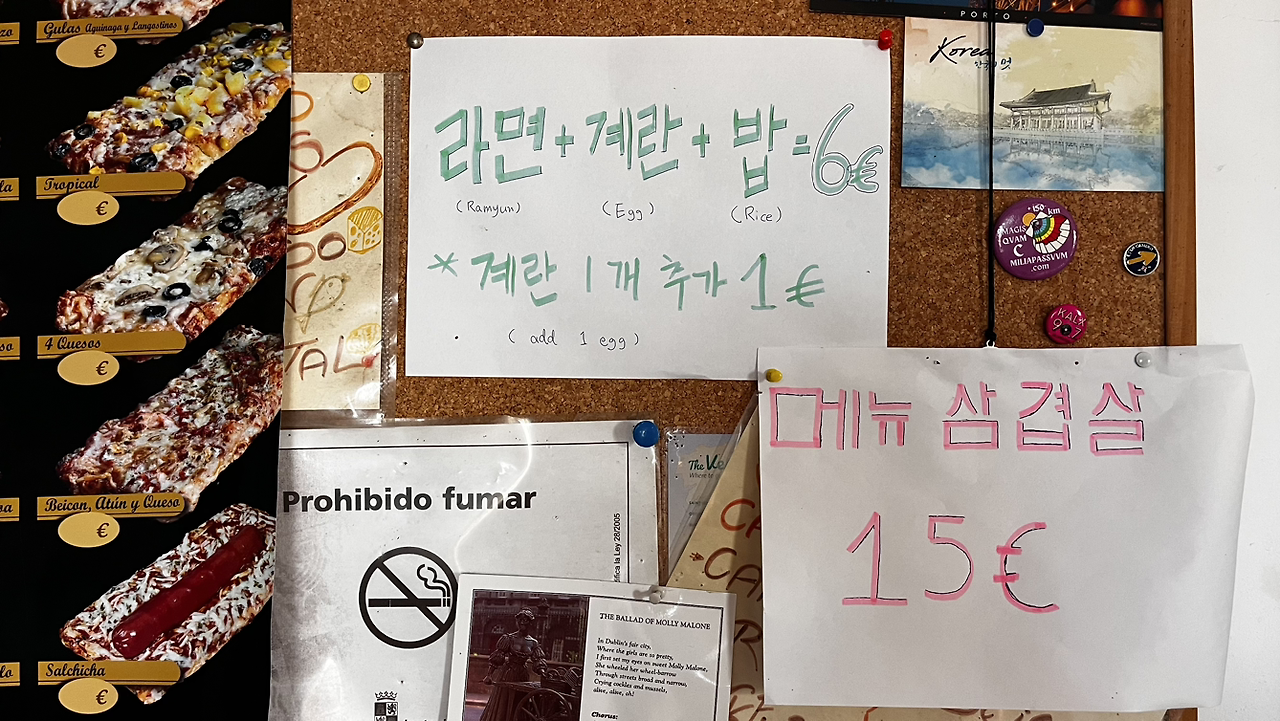 Gulas Aguinaga y Langostinos
€
Tropical
€
4 Quesos
€
Beicon, Atún y Queso
€
Salchicha
€
TAL
라면+계란+밥=6€
(Ramyun) (Egg) (Rice)
*계란 1개 추가 1€
(add 1 egg)
PORTO
Korea
150 km
MAGIS
QVAM
C
MILIAPASSVVM
.com
KALX
메뉴 삼겹살
15€
Prohibido fumar
Ley 28/2005
The
THE BALLAD OF MOLLY MALONE
In Dublin's fair city,
Where the girls are so pretty,
I first set my eyes on sweet Molly Malone,
She wheeled her wheel-barrow
Through streets broad and narrow,
Crying cockles and mussels,
alive, alive, oh!
Chorus: